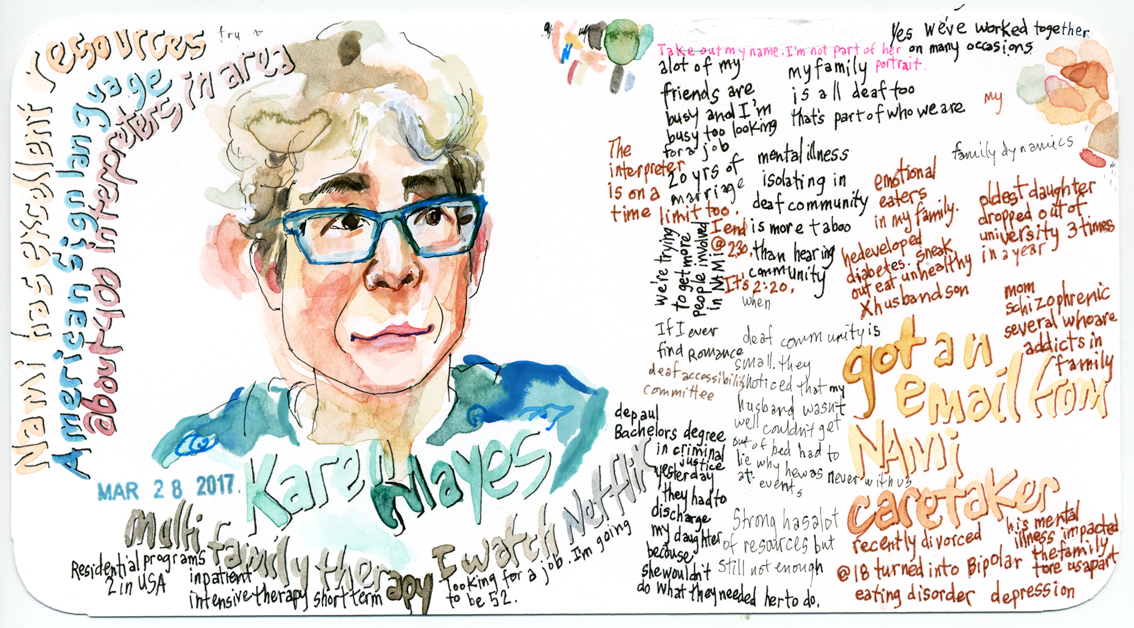 Nami has excellent resources
American Sign language
about 400 interpreters in area
MAR 28 2017.
Karen Mayes
Multi family therapy
Residential programs
2 in USA
inpatient
intensive therapy short term
I watch Netflix
looking for a job. I'm going
to be 52.
Take out my name. I'm not part of her
portrait.
Yes we've worked together
on many occasions
alot of my
friends are
busy and I'm
busy too looking
for a job
my family
is all deaf too
that's part of who we are
my
family dynamics
The
interpreter
is on a
time limit too.
I end
@ 2:30.
It's 2:20.
20 yrs of
marriage
we're trying
to get more
people involved
in NAMI
mental illness
isolating in
deaf community
is more taboo
than hearing
community
when
If I ever
find Romance
deaf accessibility
committee
deaf community is
small. they
noticed that my
husband wasn't
well couldn't get
out of bed had to
lie why he was never with us
at events
depaul
Bachelors degree
in criminal
justice
yesterday
they had to
discharge
my daughter
because
she wouldn't
do what they needed her to do.
Strong has alot
of resources but
still not enough
emotional
eaters
in my family.
he developed
diabetes. sneak
out eat unhealthy
X husband son
oldest daughter
dropped out of
university 3 times
in a year
mom
schizophrenic
several who are
addicts in
family
got an
email from
NAMI
caretaker
recently divorced
his mental
illness impacted
the family
tore us apart
@18 turned into Bipolar
eating disorder depression